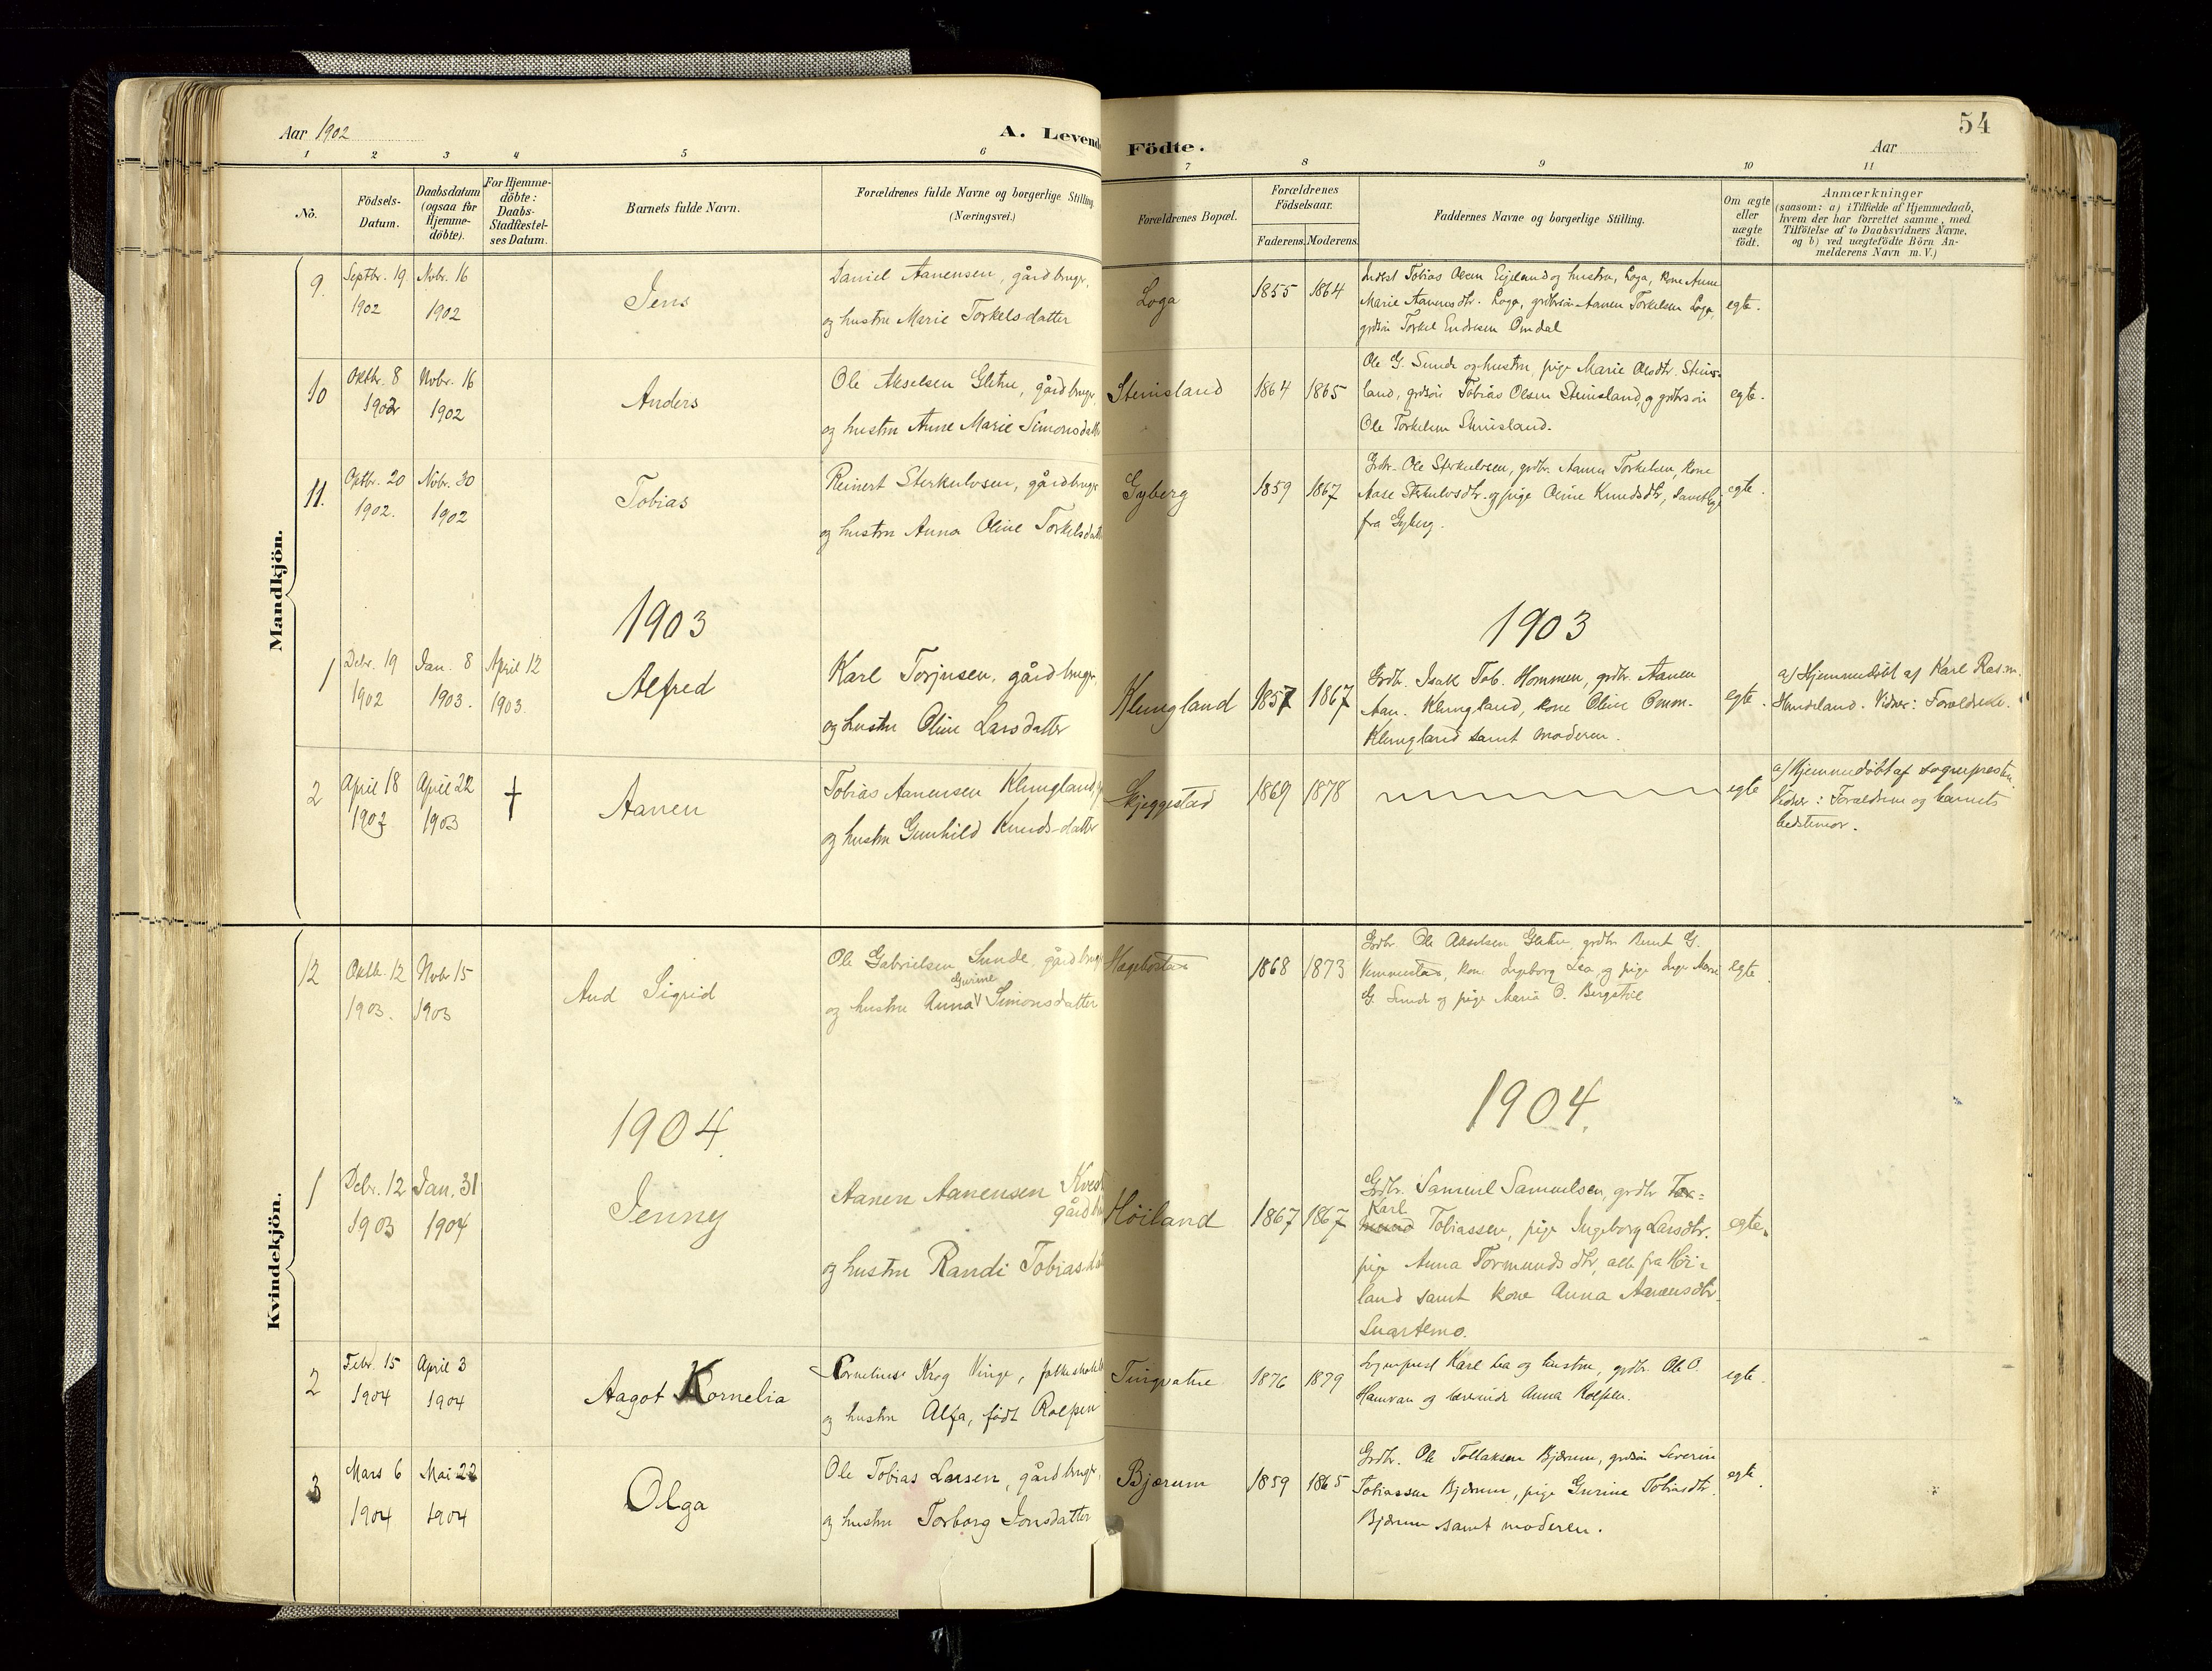 54
Aar 1902
A. Levende
Födte.
Aar
1 2 3 4 5 6 7 8 9 10 11
No.
Födsels-
Datum.
Daabsdatum
(ogsaa for
Hjemme-
döbte).
For Hjemme-
döbte:
Daabs-
Stadfæstel-
ses Datum.
Barnets fulde Navn.
Forældrenes fulde Navne og borgerlige Stilling
(Næringsvei.)
Forældrenes Bopæl.
Forældrenes
Födselsaar.
Faderens. Moderens.
Faddernes Navne og borgerlige Stilling.
Om ægte
eller
uægte
födt.
Anmærkninger
(saasom: a) i Tilfælde af Hjemmedaab,
hvem der har forrettet samme, med
Tilföielse af to Daabsvidners Navne,
og b) ved uægtefödte Börn An-
melderens Navn m. V.)
Mandkjön.
9. Septbr. 19 Nvbr. 16
1902 1902
Jens
Daniel Aanensen, gårdbruger,
og hustru Marie Torkelsdatter
Loga
1855 1864
Indest Tobias Olsen Eigeland og hustru, Loga, kone Anne
Marie Aanensdtr. Loga, grdbrsön Aanen Torkelsen Loga,
grdsön Torkel Endresen Omdal
egte.
10 Oktbr. 8 Nvbr. 16
1902 1902
Anders
Ole Akselsen Gletne, gårdbruger,
og hustru Anne Marie Simonsdatter
Steinsland
1864 1865
Ole G. Sunde og hustru, pige Marie Olsdtr. Steins-
land, grdsön Tobias Olsen Steinsland, og grdbrsön
Ole Torkelsen Steinsland.
egte.
11. Oktbr. 20 Nvbr. 30
1902. 1902
Tobias
Reinert Sterkulvsen, gårdbruger
og hustru Anna Oline Torkelsdatter
Gyberg
1859 1867
Grdbr. Ole Sterkulvsen, grdbr. Aanen Torkelsen, kone
Aase Sterkulvsdtr. og pige Oline Knudsdtr, samtlige
fra Gyberg.
egte.
1903
1903
1 Debr. 19 Jan. 8 April 12
1902 1903. 1903.
Alfred
Karl Torjusen, gårdbruger,
og hustru Oline Larsdatter
Klungland
1857 1867
Grdbr. Isak Tob. Hommen, grdbr. Aanen
Aan. Klungland, kone Oline Omm.
Klungland samt moderen.
egte.
a) Hjemmedöbt af Karl Rasm.
Hundeland. Vidner: Forældrene.
2 April 18 April 22 †
1903 1903
Aanen
Tobias Aanensen Klungland,
og hustru Gunhild Knudsdatter
Skjeggestad
1869 1878
egte
a) Hjemmedöbt af sognepresten.
Vidner: Forældrene og barnets
bedstemor.
Kvindekjön.
12 Oktb. 12 Nvbr 15
1903. 1903
Aud Sigrid
Ole Gabrielsen Sunde, gårdbruger
Gurine
og hustru Anna Simonsdatter
Hægebostad
1868 1873
Grdbr. Ole Akselsen Gletne, grdbr Bernt G.
kone Ingeborg Lea, og pige Inger Marie
G. Sunde og pige Maria O. Bergstöl
egte.
1904.
1904.
1 Debr. 12 Jan. 31
1903 1904
Jenny
Aanen Aanensen
gårdbr
og hustru Randi Tobiasdatter
Höiland
1867 1867
Grdbr. Samuel Samuelsen, grdbr Tor=
Karl
mund Tobiassen, pige Ingeborg Larsdtr.
pige Anna Tormundsdtr, alle fra Höi=
land samt kone Anna Aanensdtr.
Snartemo.
egte.
2 Febr. 15 April 3
1904 1904
Aagot Kornelia
Cornelius Krog Vinge,
og hustru Alfa, född
Tingvatne
1876 1879
Sogneprest Karl Lea og hustru, grdbr. Ole O.
Hamran og lærerinde Anna
egte.
3 Mars 6 Mai 22
1904 1904
Olga
Ole Tobias Larsen, gårdbruger,
og hustru Torborg Jonsdatter
Bjærum
1859 1865
Grdbr. Ole Tollaksen Bjærum, grdsön Severin
Tobiassen Bjærum, pige Gurine Tobiasdtr.
Bjærum samt moderen.
egte.